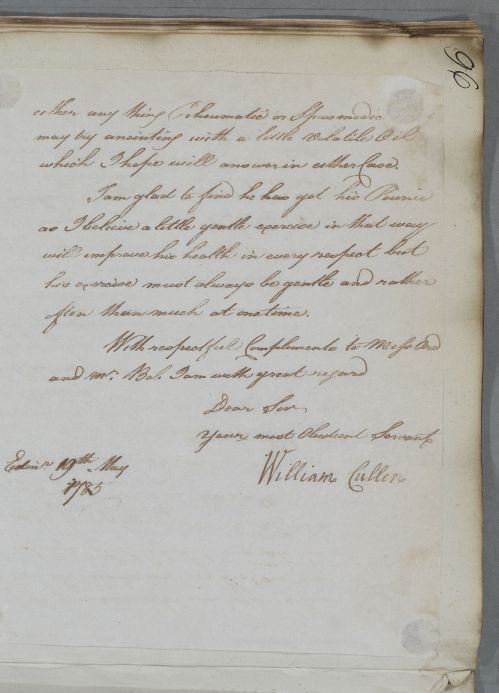 96
either any thing Rheumatic or Spasmodic
may try anointing with a little Volatile Oil
which I hope will answer in either Case.
I am glad to find he has got his Pownie
as I believe a little gentle exercise in that way
will improve his health in every respect but
his exercise must always be gentle and rather
often than much at one time.
With respectful Compliments to
and Mr. I am with great regard
Dear Sir
Your most Obedient Servant
William Cullen
Edinr. 19th. May
1785